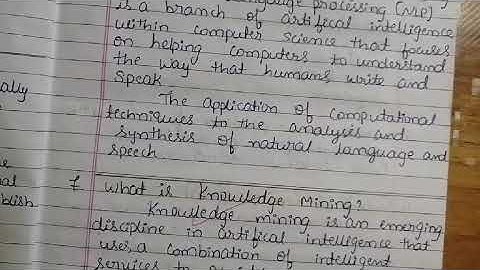 language processing (NLP)
is a branch of artifical intelligence
within computer science that focuses
on helping computers to understand
the way that humans write and
speak
The application of computational
techniques to the analysis and
synthesis of natural language and
speech
7 What is Knowledge Mining?
Knowledge mining is an emerging
discipline in artifical intelligence that
uses a combination of intelligent
services to
ally